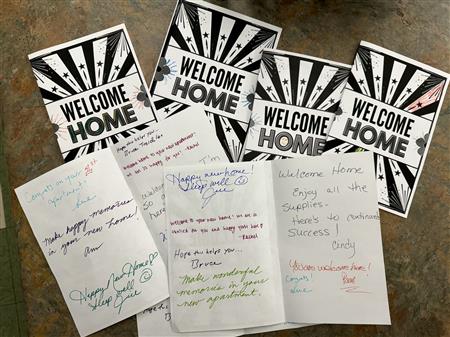 WELCOME
HOME
WELCOME
HOME
WELCOME
HOME
WELCOME
HOME
Congrats on your 1st
apartment!
Make happy memories
in your new home!
Happy New Home!
Sleep well
Hope this helps you!
Welcome home to your new apartment!
Happy new home!
Sleep well
Welcome to your new home! We are so
excited for you and happy you're here!
Rachel
Hope this helps you...
Bruce
Make wonderful
memories in your
new apartment.
Welcome Home
Enjoy all the
supplies-
Here's to continued
Success!
Cindy
Welcome home!
Congrats!